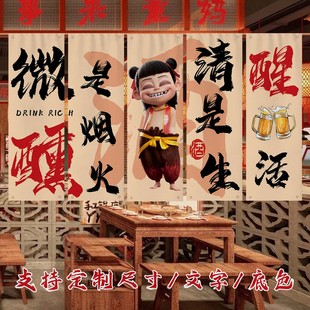 微
DRINK RICH
醺
是烟火
清醒
是生活
酒
支持定制尺寸/文字/底色